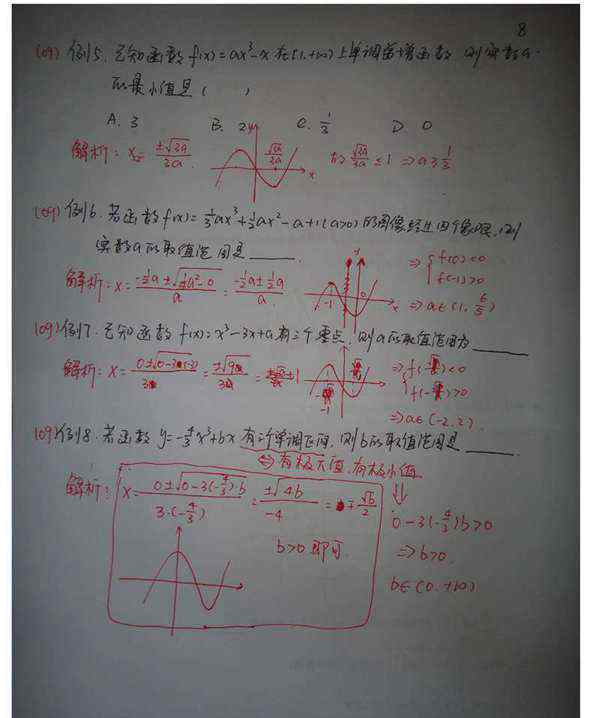 8
(09) 例5. 已知函数 f(x)=ax³-x 在[1,+∞)上单调增函数 则实数a
的最小值是 ( )
A. 3 B. 2 C. 1/3 D. 0
解析: x= ±√3a / 3a √3a/3a x ≤1 ⇒ a≥1/3
(09) 例6. 若函数 f(x)= 1/3 ax³+ 1/2 ax²-a+1 (a>0) 的图像经过四个象限, 则
实数a的取值范围是 ______.
解析: x= -1/2 a ± √(1/4 a²-0) / a = -1/2 a ± 1/2 a / a -1 0 x ⇒ { f(0)<0 f(-1)>0
⇒ a∈(1, 6/5)
(09) 例7. 已知函数 f(x)=x³-3x+a 有三个零点, 则a的取值范围为 ______
解析: x= ±1 -1 ⇒ { <0 >0
⇒ a∈(-2, 2)
(09) 例8. 若函数 y=-4/3 x³+bx 有三个单调区间, 则b的取值范围是 ______.
⇔ 有极大值, 有极小值
解析: x= 0±√(0-3(-4/3)·b) / 3·(-4/3) = ±√4b / -4 = ∓ √b/2
⇓
0-3(-4/3)b>0
b>0 即可.
⇒ b>0.
b∈(0,+∞)